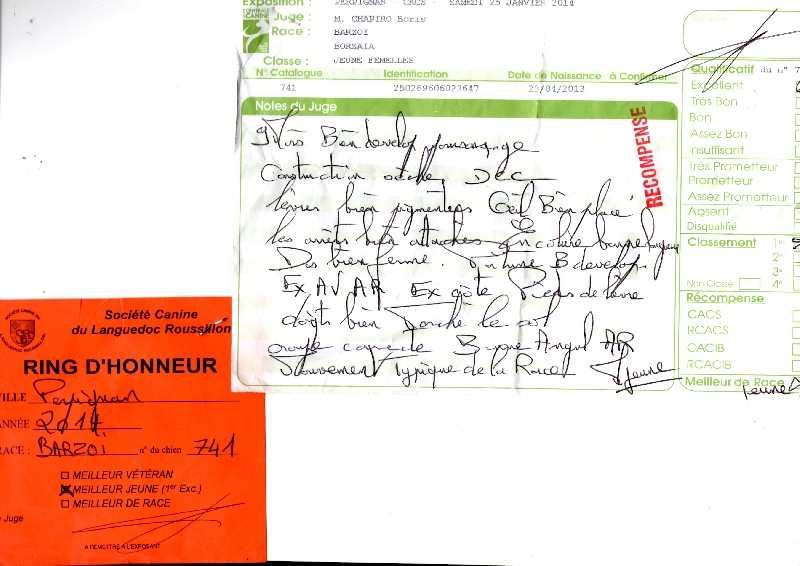 Exposition : PERPIGNAN - CACS - SAMEDI 25 JANVIER 2014
CENTRALE
CANINE
Juge : M. CHAPIRO Boris
Race : BARZOÏ
BORZAIA
Classe : JEUNE FEMELLES
N° Catalogue Identification Date de Naissance à Confirmer
741 250269606023647 23/04/2013
Notes du Juge
Bien develop
Construction DEC
lèvres bien pigmentées Œil Bien placé
les bien attachées Encolure
Dos bien ferme. B develop.
Ex AV AR Ex
doigts bien le sol
croupe correcte Bonne Angul AR
Mouvement Typique de la Race
RECOMPENSE
Qualificatif du n° 7
Excellent
Très Bon
Bon
Assez Bon
Insuffisant
Très Prometteur
Prometteur
Assez Prometteur
Absent
Disqualifié
Classement 1er
2e
3e
Non Classé 4e
Récompense
CACS
RCACS
CACIB
RCACIB
Meilleur de Race
jeune
Société Canine
du Languedoc Roussillon
RING D'HONNEUR
VILLE Perpignan
ANNÉE 2014
RACE : BARZOÏ n° du chien 741
MEILLEUR VÉTÉRAN
MEILLEUR JEUNE (1er Exc.)
MEILLEUR DE RACE
Juge
A REMETTRE A L'EXPOSANT